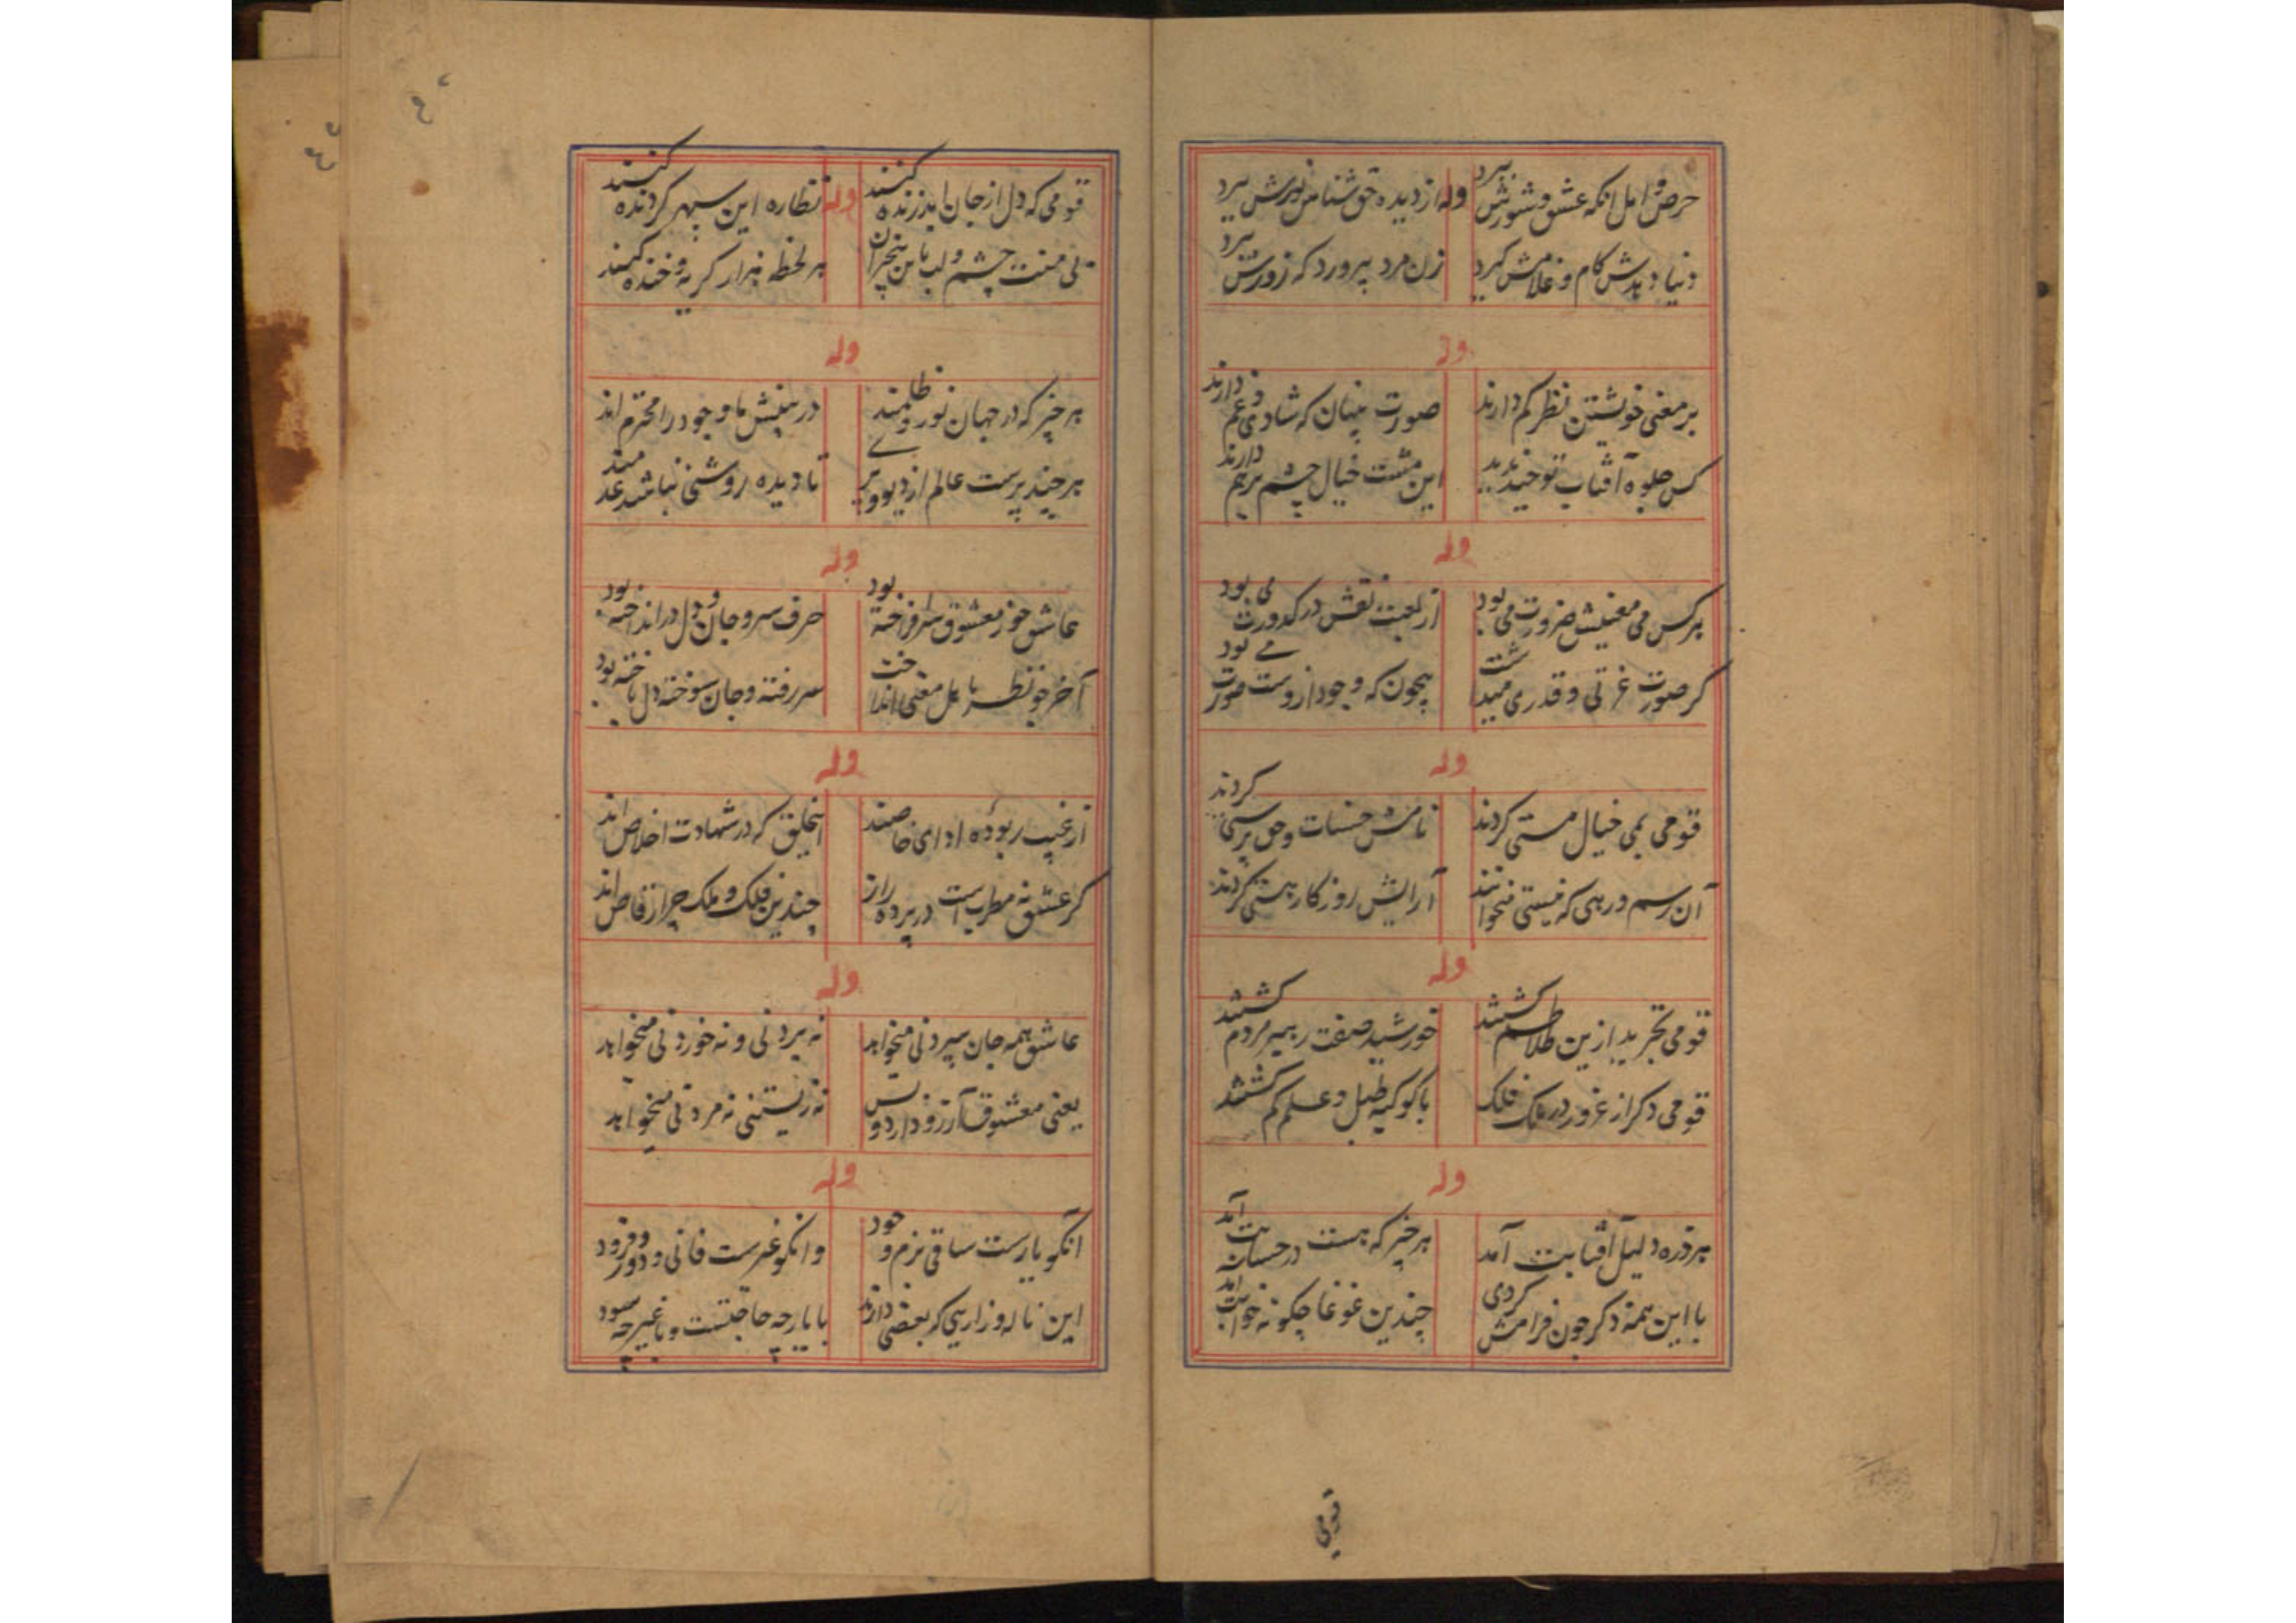 حرص و امل انکه عشق و شورش ببرد
وله
از دیده حق شناس نورش ببرد
دنیا دهدش کام و غلامش گیرد
زن مرد بپرورد که زورش ببرد
وله
بر معنی خویشتن نظر کم دارند
صورت نبهان که شادی و غم دارند
کس جلوه آفتاب توحید ندید
این مشت خیال چشم بر هم دارند
وله
هر کس می معنیش ضرورت می بود
از لعبت نقش در کدورت می بود
کر صورت عزتی و قدری میداشت
بیچون که وجود ازوست صورت می بود
وله
قومی بمی خیال مستی کردند
نامش حسنات و حق پرستی کردند
آن رسم و رهی که نیستی میخوانند
آرایش روزکار هستی کردند
وله
قومی تجرید ازین طلاطم کشتند
خورشید صفت رهبر مردم کشتند
قومی دکر از غرور در ملک فلک
با کوکبه طبل و علم کم کشتند
وله
هر ذره دلیل آفتابت آمد
هر چیز که هست در حسابت آمد
با این همه ذکر چون فرامش کردی
چندین غوغا چکونه خوابت آمد
قومی
قومی که دل از جان ابد زنده کنند
وله
نظاره این سپهر کردنده کنند
بی منت چشم و لب باین بیخبران
هر لحظه هزار کریه و خنده کنند
وله
هر چیز که در جهان نور و ظلمند
در بینش ما وجود را محترم اند
هر چند پرست عالم از دیو و پری
تا دیده روشنی نباشد عدمند
وله
عاشق جوز معشوق سرافراخته بود
حرف سر و جان و دل در انداخته بود
آخر جو نظر باهل معنی انداخت
سر رفته و جان سوخته دل باخته بود
وله
از غیب ربوده ادای خاصند
اینخلق که در شهادت اخلاص اند
کر عشق نه مطربست در پرده راز
چندین فلک و ملک چرا رقاص اند
وله
عاشق همه جان سپردنی میخواهد
نه بردنی و نه خوردنی میخواهد
یعنی معشوق آرزو دارد و بس
نه زیستنی نه مردنی میخواهد
وله
آنکو یارست ساقی بزم و خود
وانکو غیرست فانی و دود و فرود
این ناله و زاریی که بعضی دارند
با یار چه حاجتست و با غیر چه سود